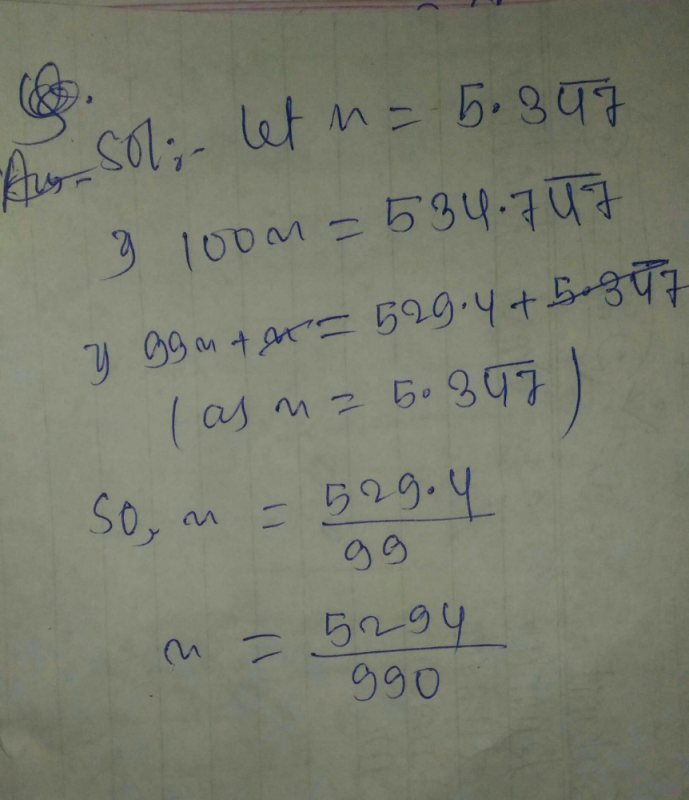 Sol:- let x = 5.3\overline{47}
⇒ 100x = 534.7\overline{47}
⇒ 99x + x = 529.4 + 5.3\overline{47}
(as x = 5.3\overline{47})
So, x = 529.4/99
x = 5294/990